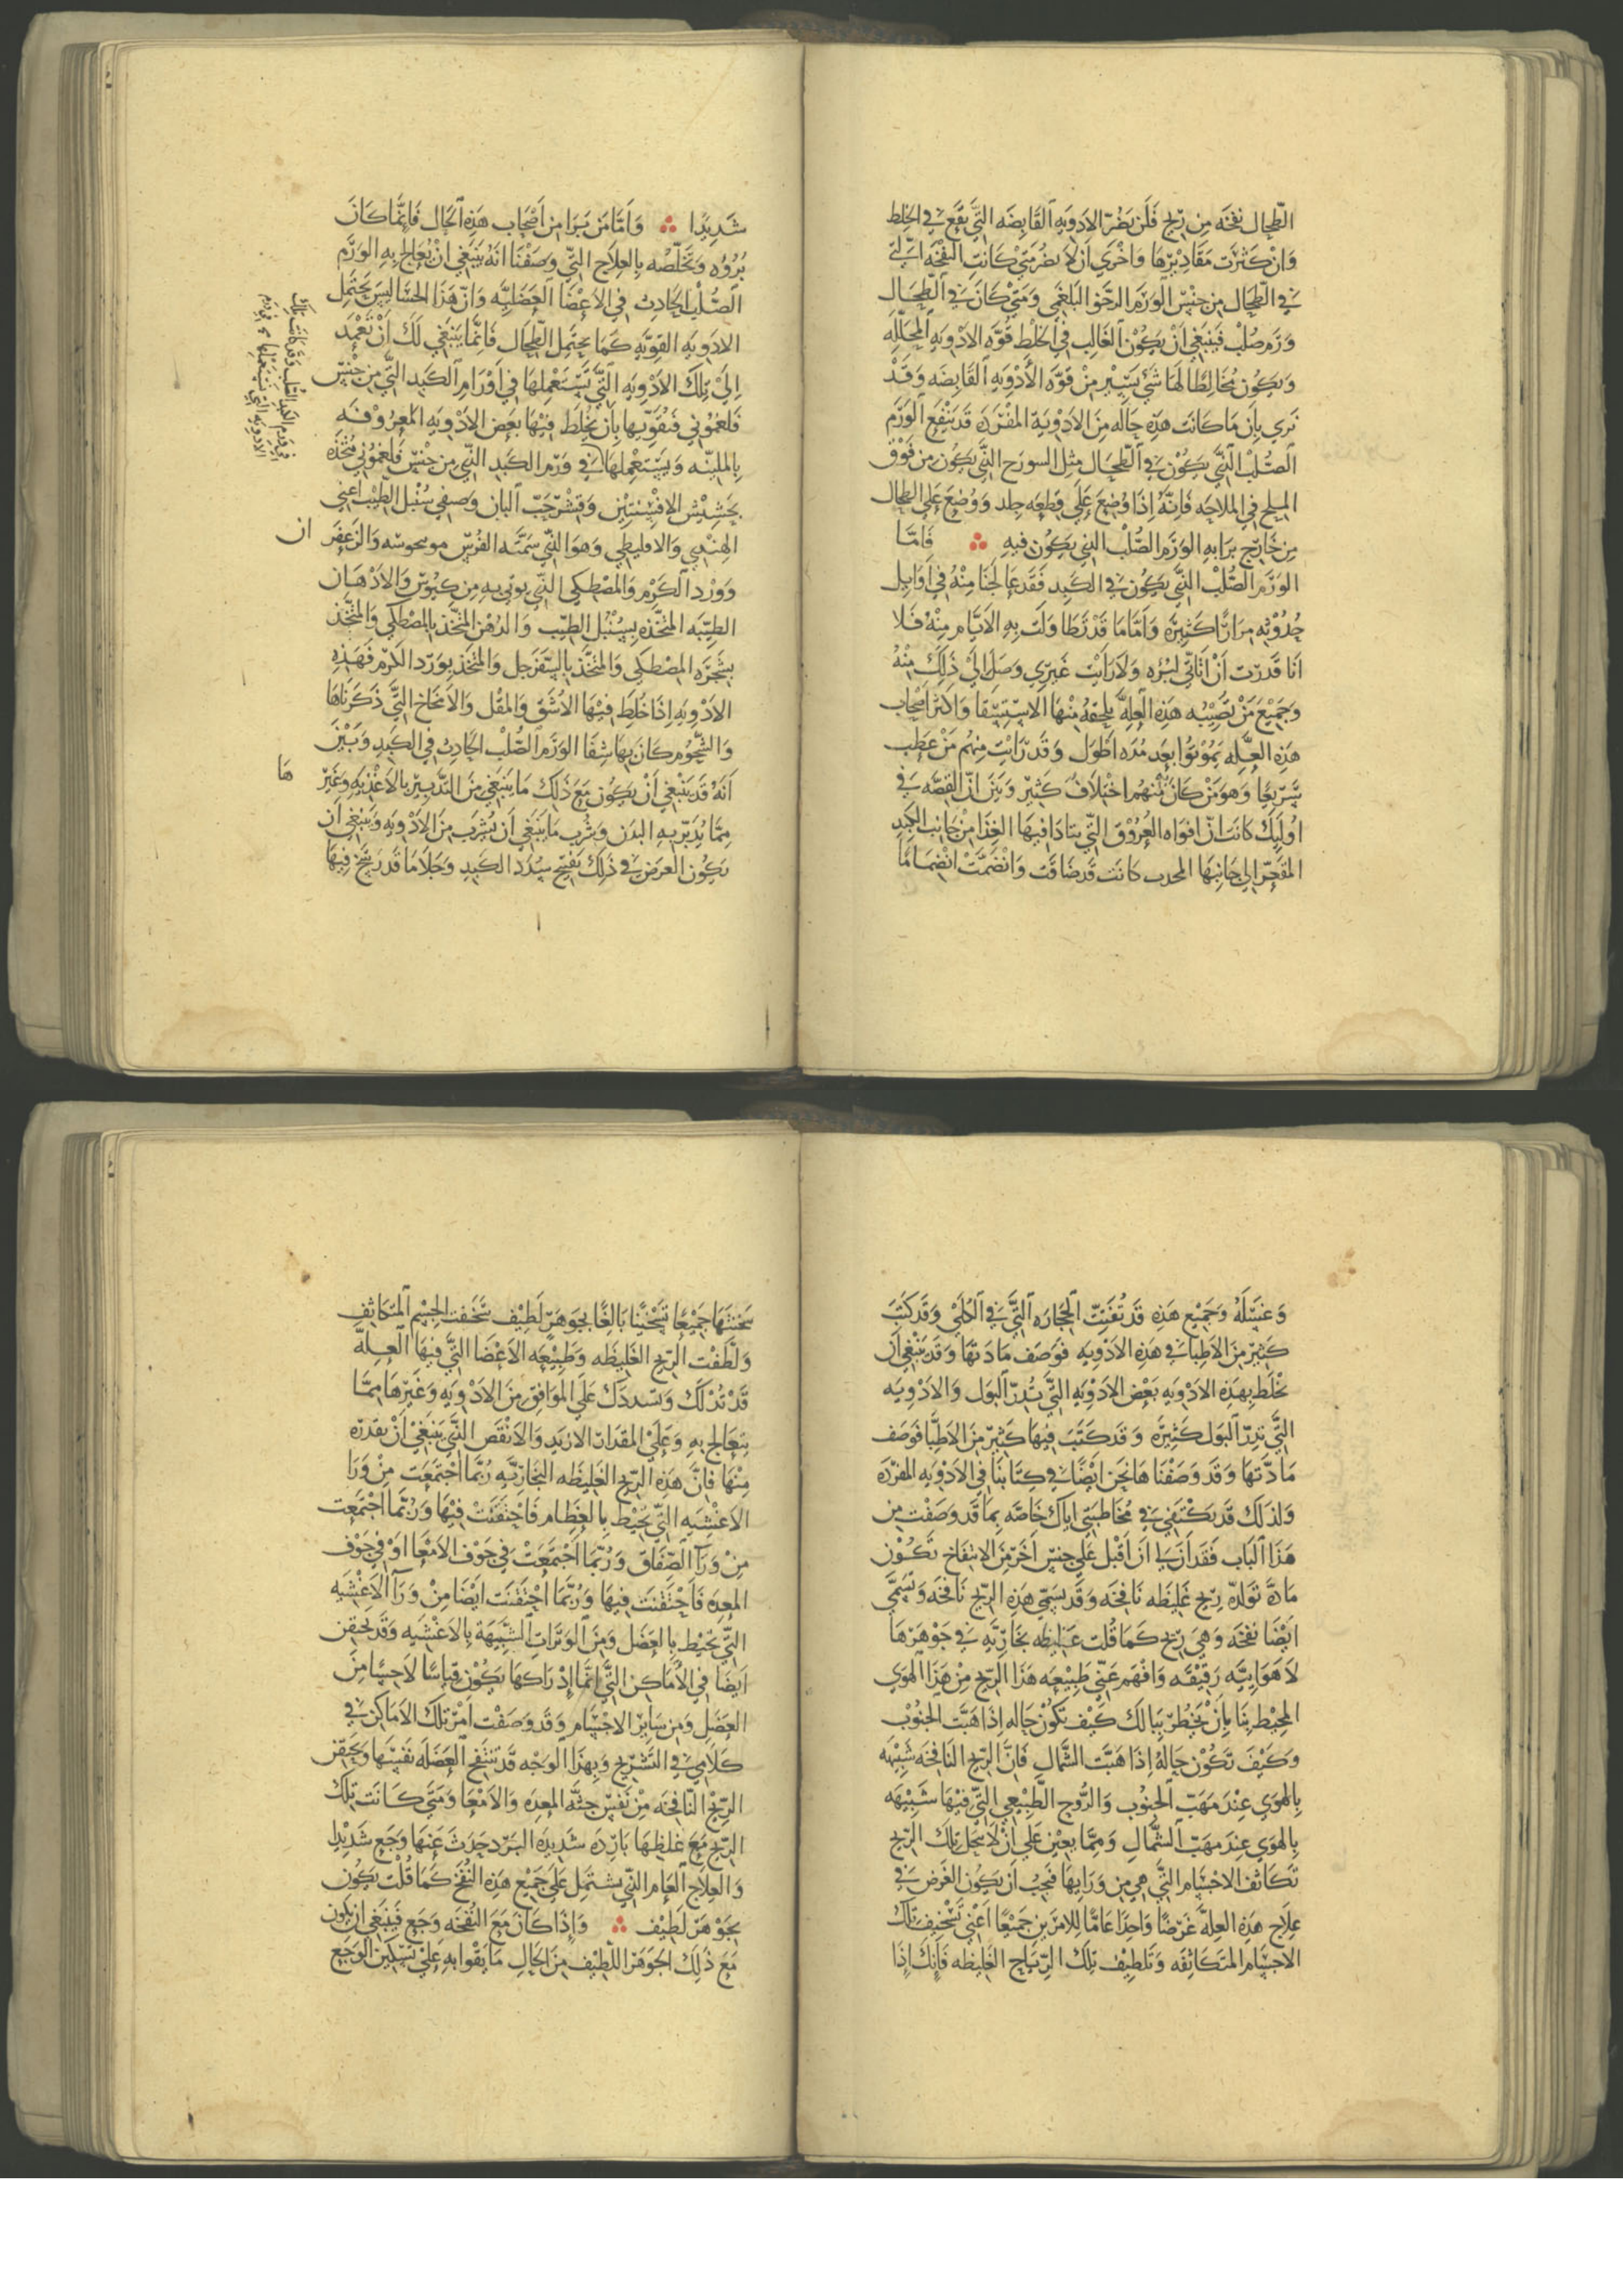 الطحال نفخه من ريح فلن تضر الادويه القابضه التي تقع في الخلط
وان كثرت مقاديرها واخري ان لا يضر متي كانت النفخه التي
في الطحال من جنس الورم الرخو البلغمي ومتي كان في الطحال
ورم صلب فينبغي ان يكون الغالب في الخلط قوه الادويه المحلله
ويكون مخالطا لها شي يسير من قوه الادويه القابضه وقد
نري بان ما كانت هذه حاله من الادوية المفرده قد ينفع الورم
الصلب الذي يكون في الطحال مثل السورح الذي يكون من فوق
الملح في الملاحه فانه اذا وضع علي قطعه جلد ووضع علي الطحال
من خارج برا به الورم الصلب الذي يكون فيه ∴ فاما
الورم الصلب الذي يكون في الكبد فقد عالجنا منه في اوايل
حدوثه مرارا كثيرة واما ما قد تطاولت به الايام منه فلا
انا قدرت ان اتاتي لبره ولا رايت غيري وصل الي ذلك منه
وجميع من تصيبه هذه العله يلحقه منها الاستسقا واكثر اصحاب
هذه العله يموتوا بعد مده اطول وقد رايت منهم من عطب
سريعا وهو من كان منهم اختلاف كثير وبين ان القصه في
اوليك كانت ان افواه العروق التي يتادا فيها الغذا من جانب الكبد
المقعر الي جانبها المحدب كانت قد ضاقت وانضمت انضماما
شديدا ∴ واما من برا من اصحاب هذه الحال فانما كان
بروه وتخلصه بالعلاج الذي وصفنا انه ينبغي ان يعالج به الورم
الصلب الحادث في الاعضا العضليه وان هذا الحشا ليس يحتمل
الادويه القويه كما يحتمل الطحال فانما ينبغي لك ان تعمد
الي تلك الادويه التي تستعملها في اورام الكبد التي من جنس
فلغموني فتقويها بان يخلط فيها بعض الادويه المعروفه
بالملينه ويستعملها في ورم الكبد الذي من جنس فلغموني متخذه
بحشيش الافسنتين وقشر حب البان وصنفي سنبل الطيب اعني
الهندي والاقليطي وهو الذي سمته الفرس موسحوسه والزعفر ان
وورد الكرم والمصطكي الذي يوتي به من كيوس والادهان
الطيبه المتخذه بسنبل الطيب والدهن المتخذ بالمصطكي والمتخذ
بشجره المصطكي والمتخذ بالسفرجل والمتخذ بورد الكرم فهذه
الادويه اذا خلط فيها الاشق والمقل والامخاخ التي ذكرناها
والشحوم كان بها شفا الورم الصلب الحادث في الكبد وبين
انه قد ينبغي ان يكون مع ذلك ما ينبغي من التدبير بالاغذيه وغير ها
مما يدبر به البدن وشرب ما ينبغي ان يشرب من الادويه وينبغي ان
يكون الغرض في ذلك تفتح سدد الكبد وجلا ما قد رسخ فيها
وغسله وجميع هذه قد تفتت الحجاره التي في الكلي وقد كتب
كثير من الاطبا في هذه الادويه فوصف مادتها وقد ينبغي ان
يخلط بهذه الادويه بعض الادويه التي تدر البول والادويه
التي تدر البول كثيرة وقد كتب فيها كثير من الاطبا فوصف
مادتها وقد وصفناها نحن ايضا في كتابنا في الادويه المفرده
ولذلك قد يكتفي في مخاطبتي اياك خاصه بما قد وصفت من
هذا الباب فقد ان لي ان اقبل علي جنس اخر من الانتفاخ تكون
مادة تولده ريح غليظه نافخه وقد يسمي هذه الريح نافخه وتسمي
ايضا نفخه وهي ريح كما قلت غليظه بخاريه في جوهرها
لا هواييه رقيقه وافهم عني طبيعه هذا الريح من هذا الهوي
المحيط بنا بان يخطر ببالك كيف تكون حاله اذا هبت الجنوب
وكيف تكون حاله اذا هبت الشمال فان الريح النافخه شبيهه
بالهوي عند مهب الجنوب والروح الطبيعي التي فيها شبيهه
بالهوي عند مهب الشمال ومما يعين علي ان لا ينحل تلك الريح
تكاثف الاجسام التي هي من ورايها فيجب ان يكون الغرض في
علاج هذه العلة غرضا واحدا عاما للامرين جميعا اعني تسخيف تلك
الاجسام المتكاثفه وتلطيف تلك الرياح الغليظه فانك اذا
سخنتها جميعا تسخينا بالغا بجوهر لطيف سخفت الجسم المتكاثف
ولطفت الريح الغليظه وطبيعه الاعضا التي فيها العله
قد تدلك وتسددك علي الموافق من الادويه وغيرها مما
يعالج به وعلي المقدار الازيد والانقص الذي ينبغي ان يقدره
منها فان هذه الريح الغليظه البخاريه ربما اجتمعت من ورا
الاغشيه التي تحيط بالعظام فاحتقنت فيها وربما اجتمعت
من ورا الصفاق وربما اجتمعت في جوف الامعا او في جوف
المعده فاحتقنت فيها وربما احتقنت ايضا من ورا الاغشيه
التي تحيط بالعضل ومن الوترات الشبيهة بالاغشيه وقد يحتقن
ايضا في الاماكن التي انما ادراكها يكون قياسا لا حسا من
العضل ومن ساير الاجسام وقد وصفت امر تلك الاماكن في
كلامي في التشريح وبهذا الوجه قد تنتفخ العضله نفسها ويحتقن
الريح النافخه من نفس جثه المعده والامعا ومتي كانت تلك
الريح مع غلظها بارده شديده البرد حدث عنها وجع شديدا
والعلاج العام الذي يشتمل علي جميع هذه النفخ كما قلت يكون
بجوهر لطيف ∴ واذا كان مع النفخه وجع فينبغي ان يكون
مع ذلك الجوهر اللطيف من الحال ما يقوا به علي تسكين الوجع